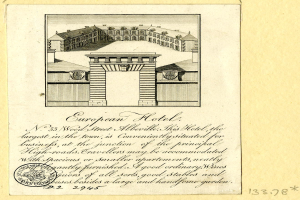 European Hotel.
No. 33 Wood Street Abbeville. This Hotel, the
largest in the town, is Conveniently situated for
business, at the junction of the principal
High-roads. Travellers may be accommodated
With Spacious or Smaller apartments, neatly
furnished. A good ordinary, Wines
of all sorts, good stables and
besides a large and handsome garden
D,2 2945
133.78*